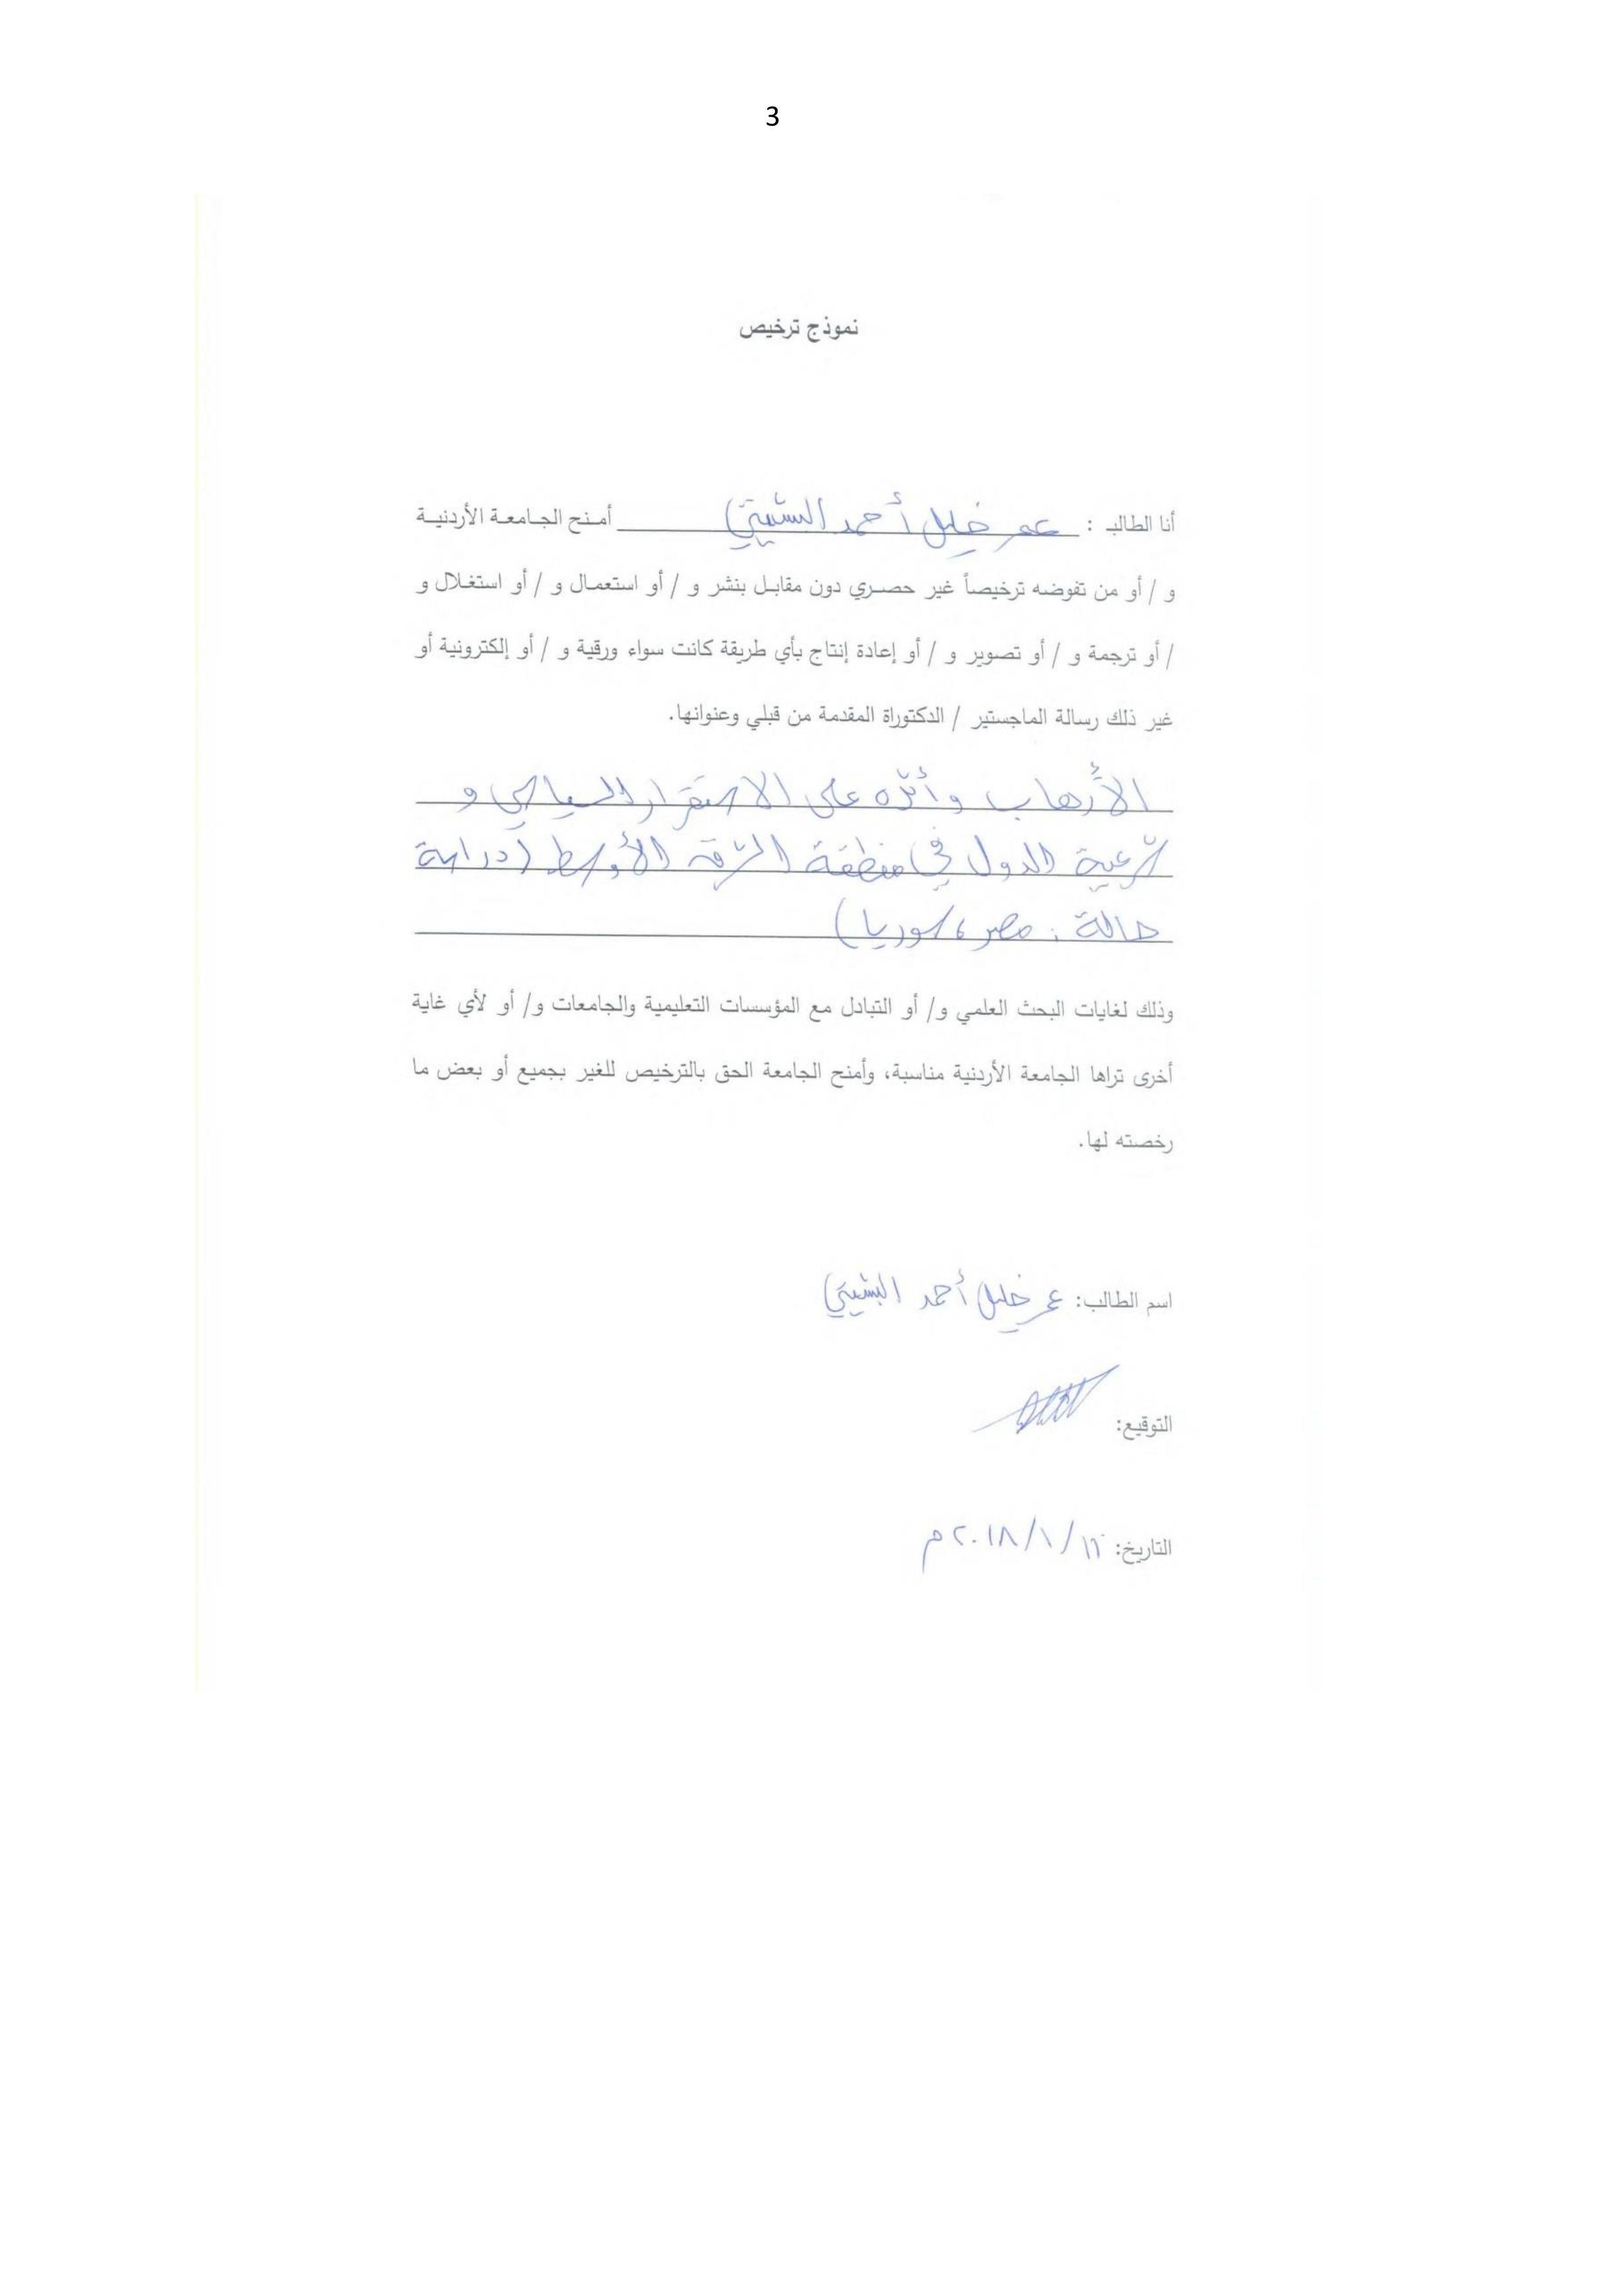 3
نموذج ترخيص
أنا الطالب : عمر خليل أحمد البشيتي أمنح الجامعة الأردنية
و / أو من تفوضه ترخيصاً غير حصري دون مقابل بنشر و / أو استعمال و / أو استغلال و
/ أو ترجمة و / أو تصوير و / أو إعادة إنتاج بأي طريقة كانت سواء ورقية و / أو إلكترونية أو
غير ذلك رسالة الماجستير / الدكتوراة المقدمة من قبلي وعنوانها.
الأرهاب وأثره على الاستقرار السياسي و
شرعية الدول في منطقة الشرق الأوسط (دراسة
حالة : مصر، سوريا)
وذلك لغايات البحث العلمي و/ أو التبادل مع المؤسسات التعليمية والجامعات و/ أو لأي غاية
أخرى تراها الجامعة الأردنية مناسبة، وأمنح الجامعة الحق بالترخيص للغير بجميع أو بعض ما
رخصته لها.
اسم الطالب: عمر خليل أحمد البشيتي
التوقيع:
التاريخ: / ١ / ٢٠١٨ م